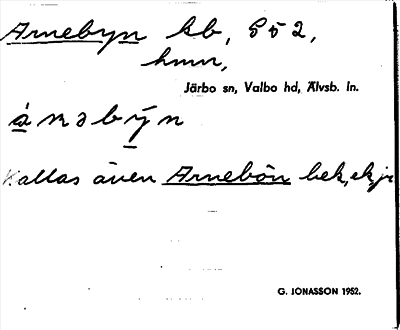 Arnebyn kb, 852,
hmn,
Järbo sn, Valbo hd, Älvsb. ln.
ánəbȳn
Kallas även Arnebön bek, ek, jr
G. JONASSON 1952.